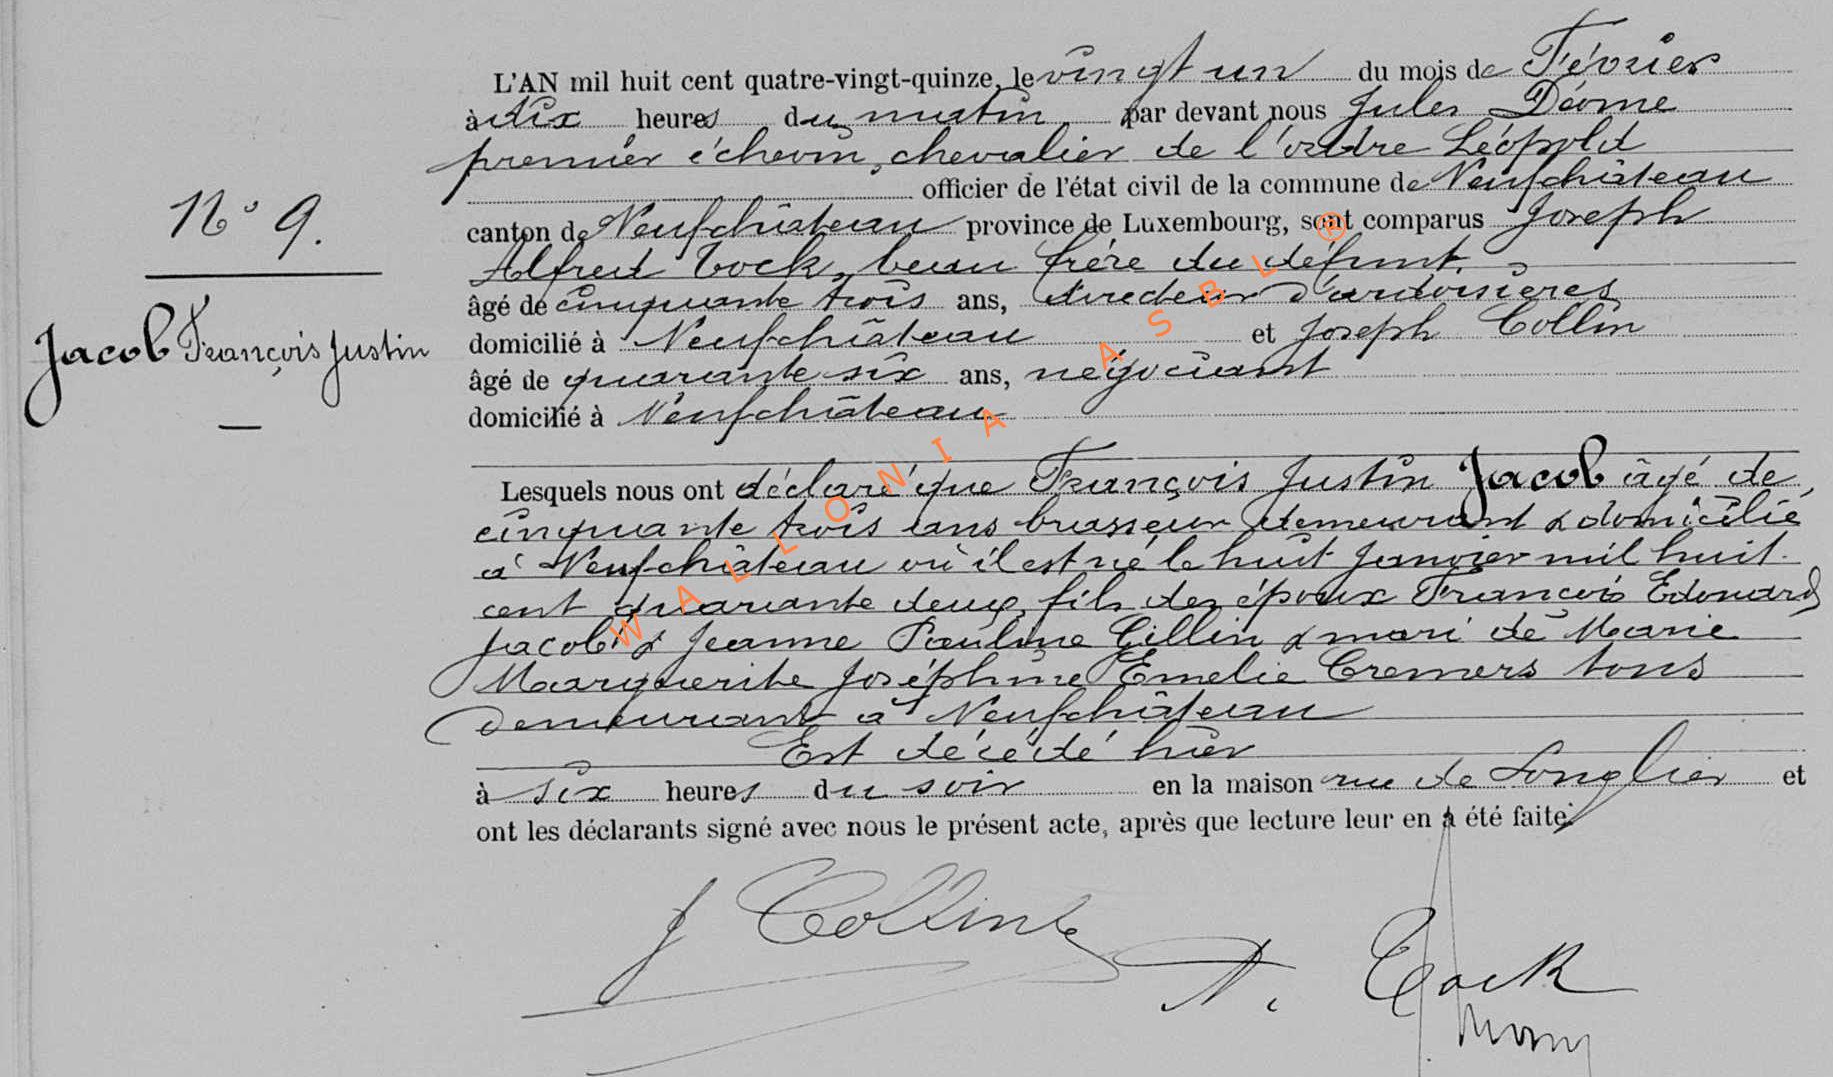 L'AN mil huit cent quatre-vingt-quinze, le vingt un du mois de Février
à dix heures du matin par devant nous Jules Déome
premier échevin, chevalier de l'ordre Léopold
officier de l'état civil de la commune de Neufchâteau
canton de Neufchâteau province de Luxembourg, sont comparus Joseph
Alfred Tock, beau frère du défunt.
âgé de cinquante trois ans, directeur d'ardoisières
domicilié à Neufchâteau et Joseph Collin
âgé de quarante six ans, négociant
domicilié à Neufchâteau
N° 9.
Jacob François Justin
Lesquels nous ont déclaré que François Justin Jacob âgé de
cinquante trois ans brasseur demeurant & domicilié
à Neufchâteau où il est né le huit Janvier mil huit
cent quarante deux, fils des époux François Edouard
Jacob & Jeanne Pauline Gillin & mari de Marie
Marguerite Joséphine Emelie Cremers tous
demeurant à Neufchâteau
Est décédé hier
à six heures du soir en la maison rue de Longlier et
ont les déclarants signé avec nous le présent acte, après que lecture leur en a été faite.
J Collin
A. Tock
WALLONIA ASBL®